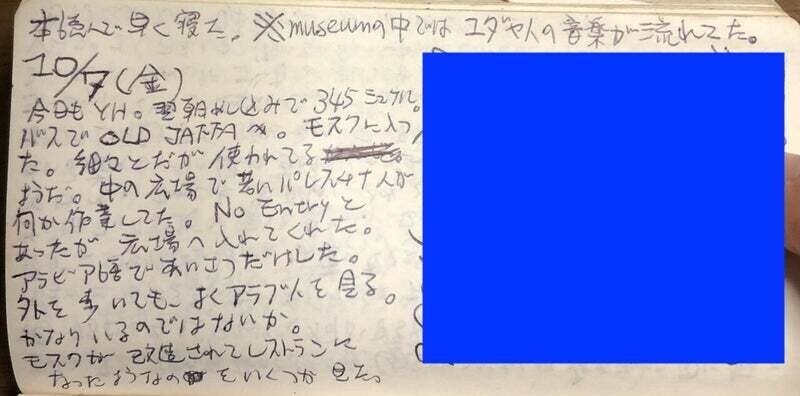 本読んで早く寝た。※museumの中ではユダヤ人の音楽が流れてた。
10/7(金)
今日もYH。翌朝めし込みで345シュケル。
バスでOLD JAFFAへ。モスクに入っ
た。細々とだが使われてる
ようだ。中の広場で若いパレスチナ人が
何か作業してた。No Entryと
あったが広場へ入れてくれた。
アラビア語であいさつだけした。
外を歩いても、よくアラブ人を見る。
かなりいるのではないか。
モスクが改造されてレストランに
なったようなのをいくつか見た。